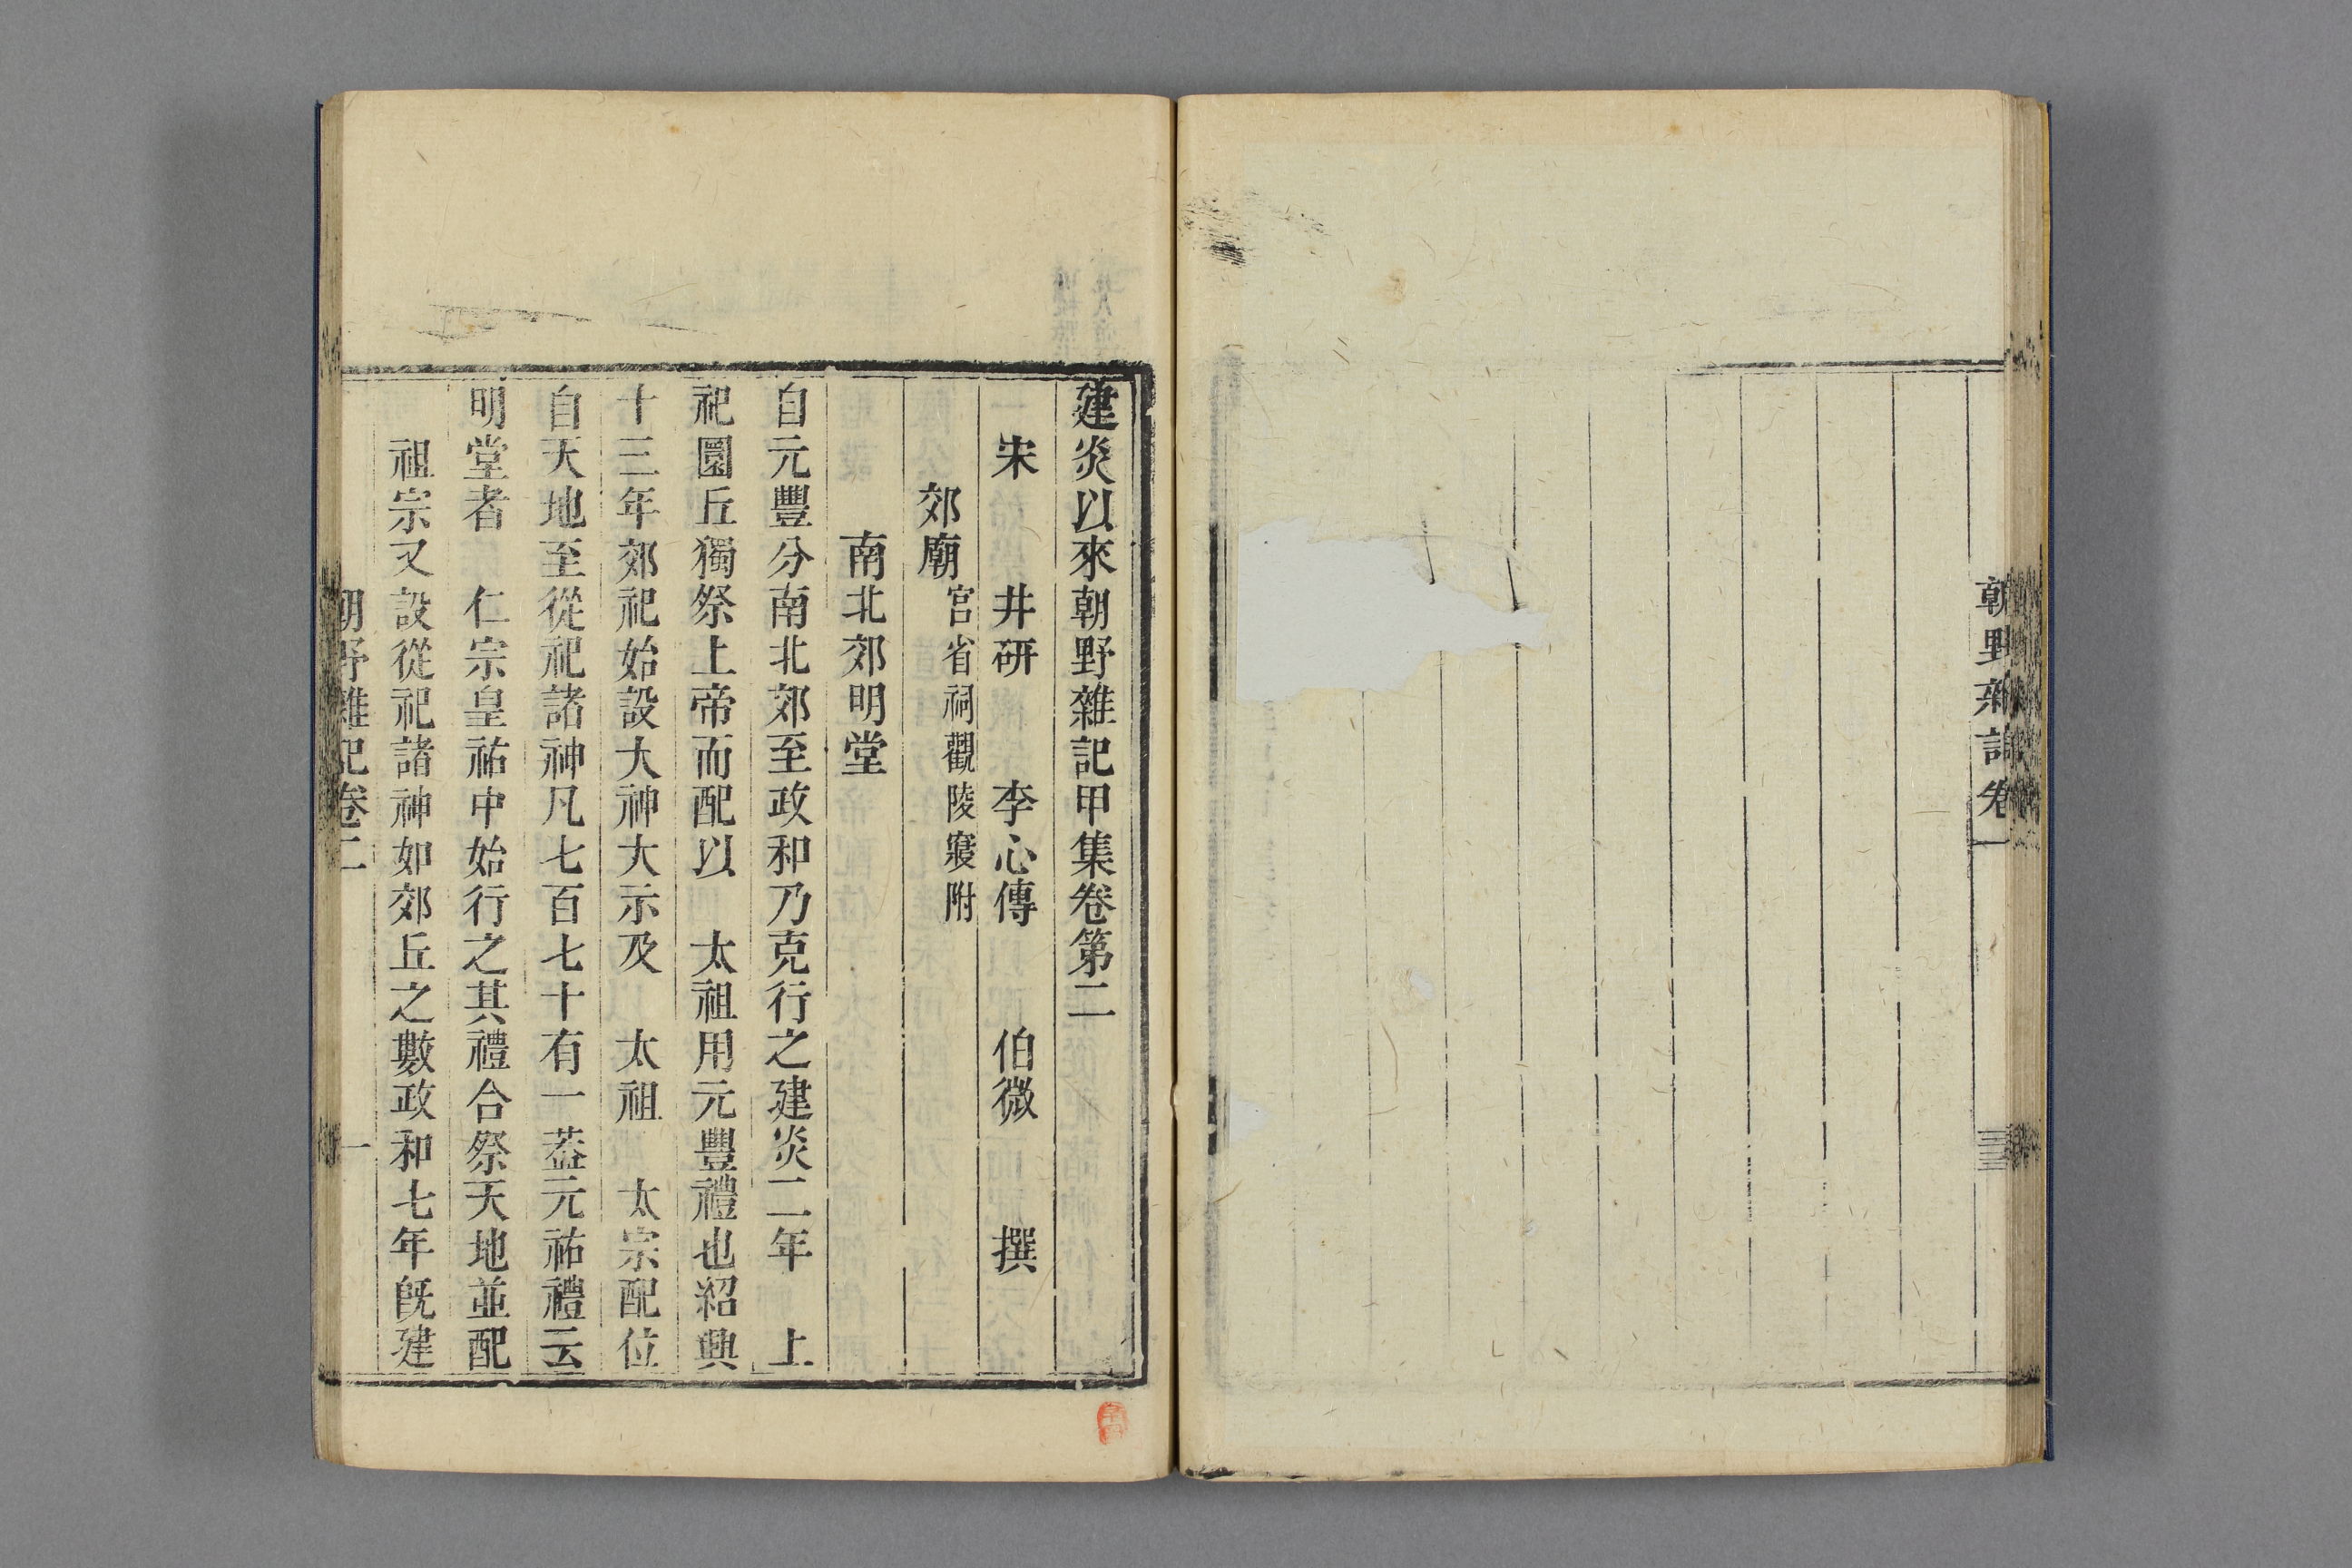 朝野雜記卷一
建炎以來朝野雜記甲集卷第二
宋　井研　李心傳　伯微　撰
郊廟宮省祠觀陵寢附
南北郊明堂
自元豐分南北郊至政和乃克行之建炎二年　上
祀圜丘獨祭上帝而配以　太祖用元豐禮也紹興
十三年郊祀始設大神大示及　太祖　太宗配位
自天地至從祀諸神凡七百七十有一蓋元祐禮云
明堂者　仁宗皇祐中始行之其禮合祭天地並配
祖宗又設從祀諸神如郊丘之數政和七年旣建
朝野雜記卷二　一